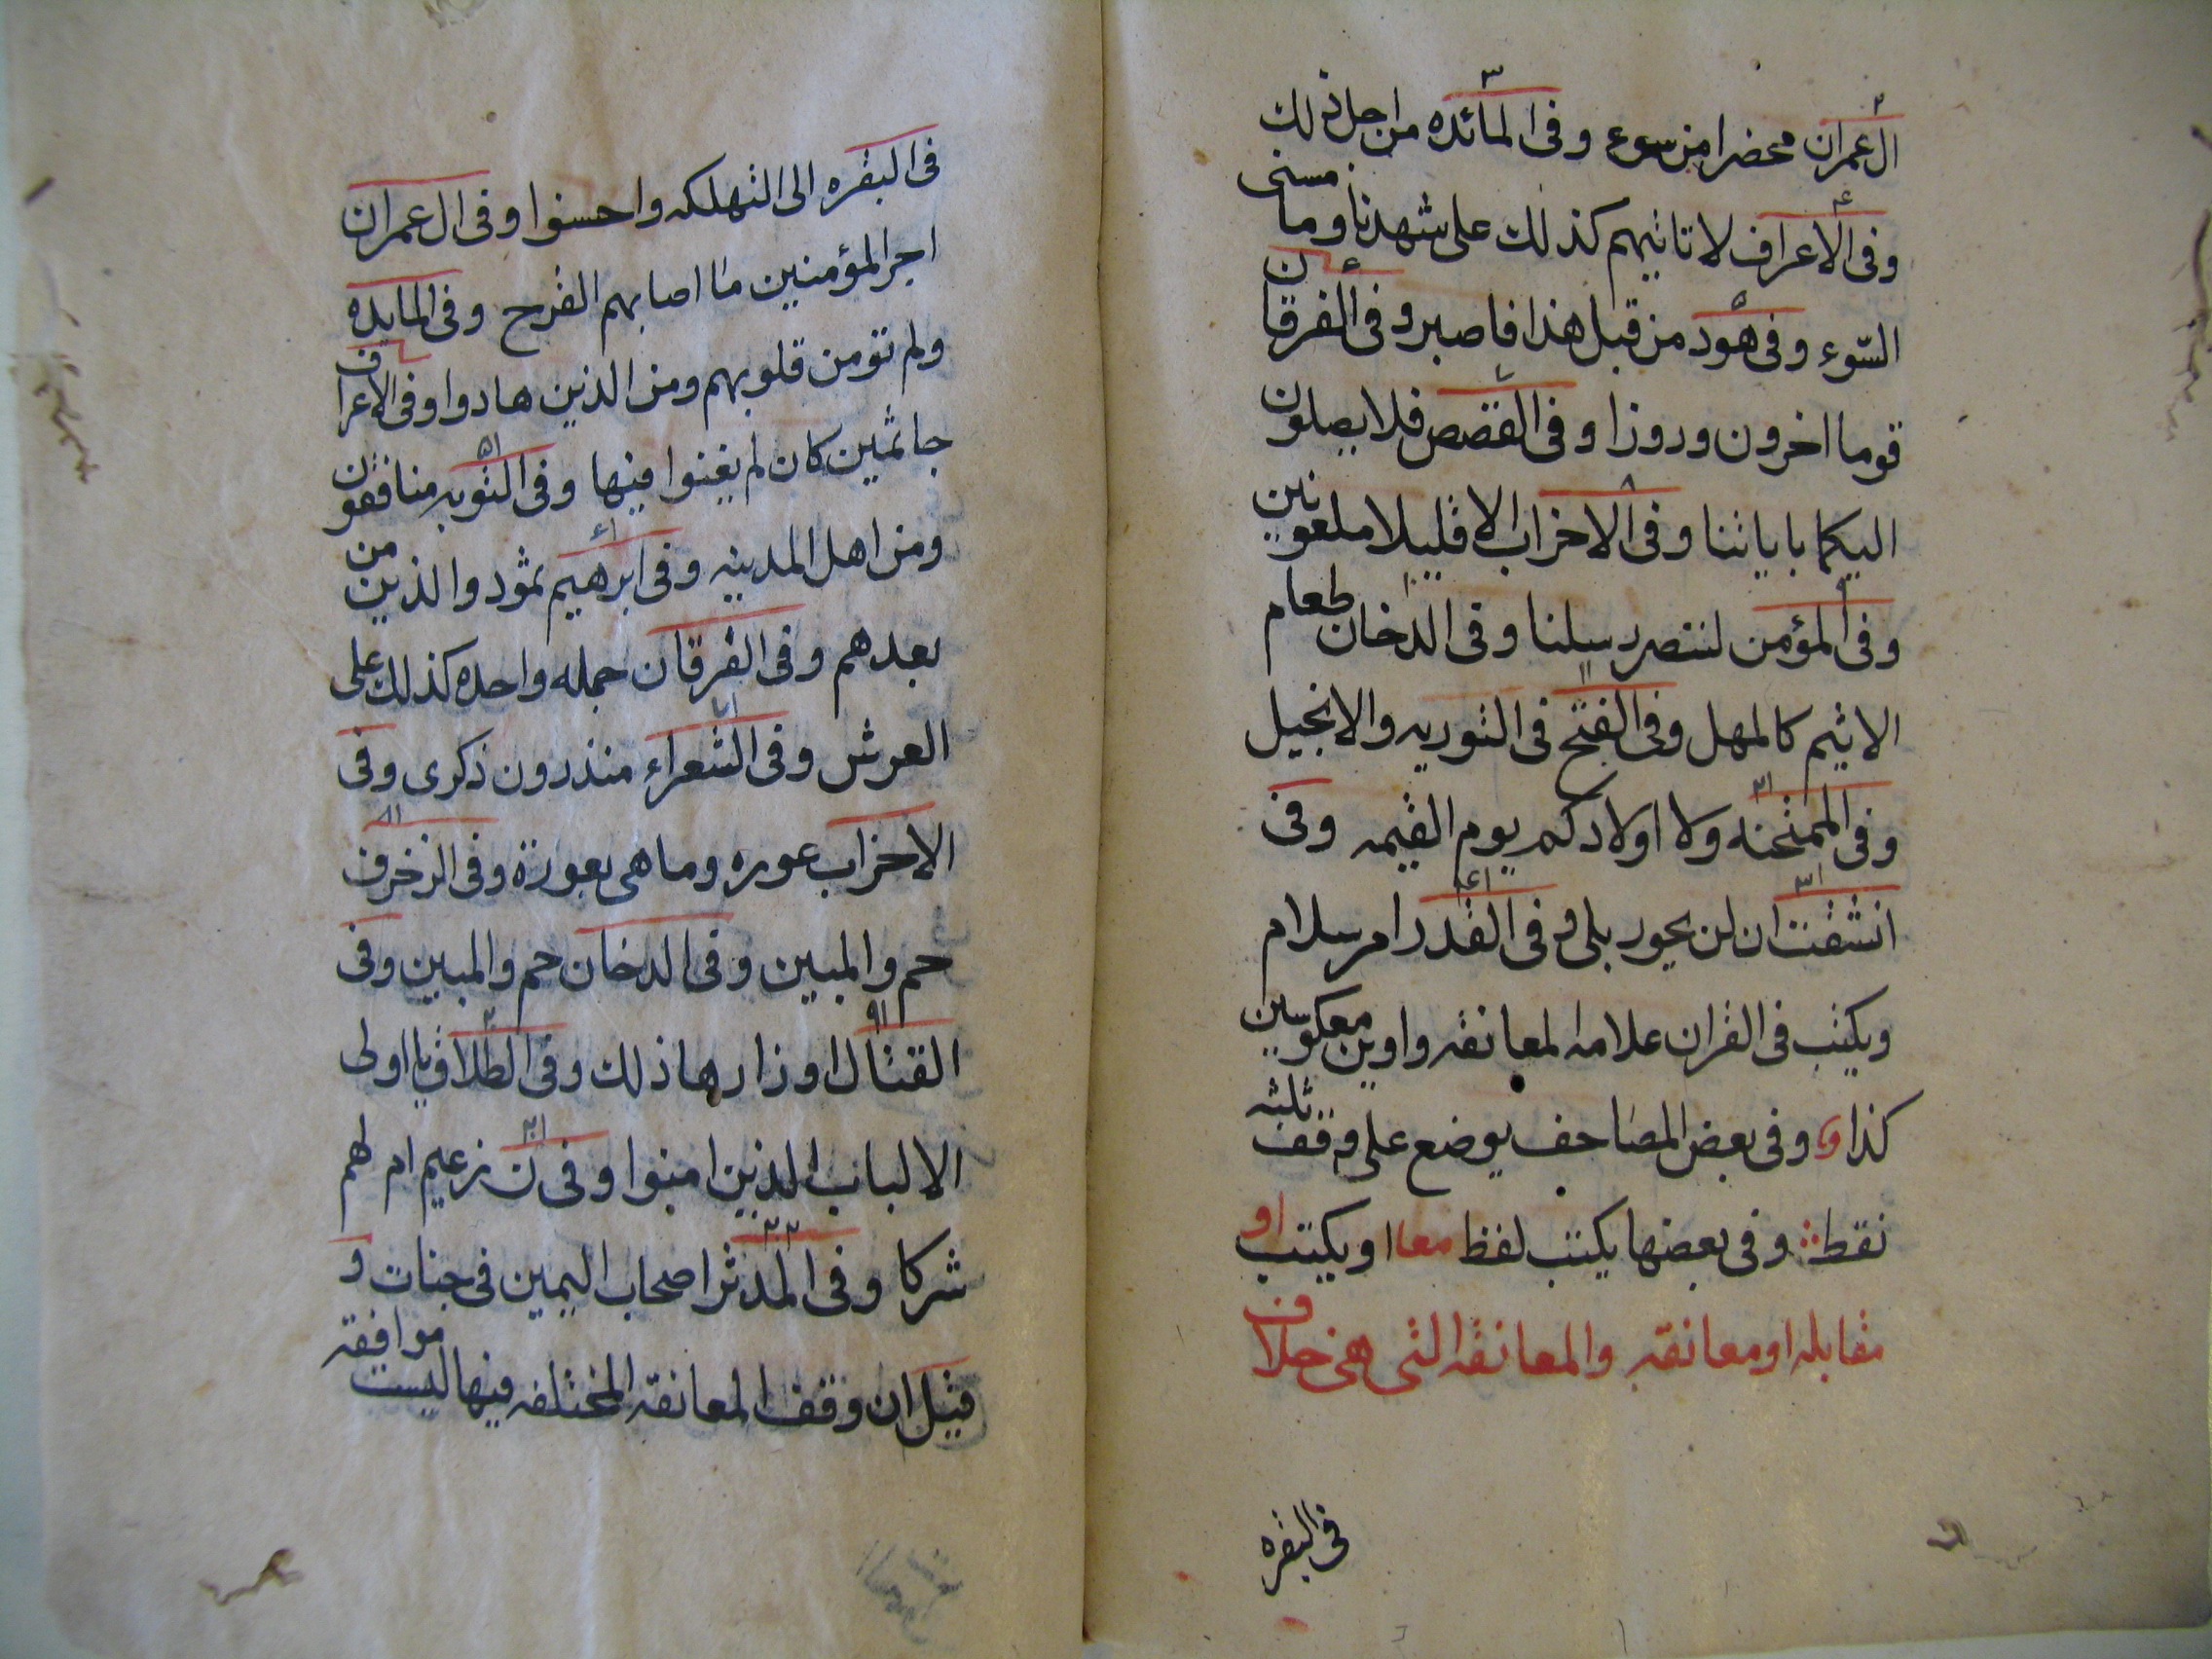 ال عمران محضرا من سوء وفى المائده من اجل ذلك
وفى الاعراف لا تاتيهم كذلك على شهدنا وما مسنى
السّوء وفى هود من قبل هذا فاصبر وفى الفرقان
قوما اخرون وروزا وفى القصص فلا يصلون
اليكما باياتنا وفى الاحزاب الا قليلا ملعونين
وفى المؤمن لننصر رسلنا وفى الدخان طعام
الاثيم كالمهل وفى الفتح فى التوريه والانجيل
وفى الممتحنه ولا اولادكم يوم القيمه وفى
انشقت ان لن يحور بلى وفى القدر امر سلام
ويكتب فى القران علامه المعانقه واوين معكوسين
كذا و وفى بعض المصاحف يوضع على وقف ثلثه
نقط ؞ وفى بعضها يكتب لفظ معا او يكتب او
مقابله او معانقه والمعانقه التى هى خلاف
فى البقره
فى البقره الى التهلكه واحسنوا وفى ال عمران
اجر المؤمنين ما اصابهم القرح وفى المايده
ولم تؤمن قلوبهم ومن الذين هادوا وفى الاعراف
جاثمين كان لم يغنوا فيها وفى التوبه منافقون
ومن اهل المدينه وفى ابرهيم ثمود والذين من
بعدهم وفى الفرقان جمله واحده كذلك على
العرش وفى الشعراء منذرون ذكرى وفى
الاحزاب عوره وما هى بعورة وفى الزخرف
حم والمبين وفى الدخان حم والمبين وفى
القتال اوزارها ذلك وفى الطلاق يا اولى
الالباب الذين امنوا وفى ن زعيم ام لهم
شركا وفى المدثر اصحاب اليمين فى جنات و
قيل ان وقف المعانقه المختلفه فيها ليست موافقه